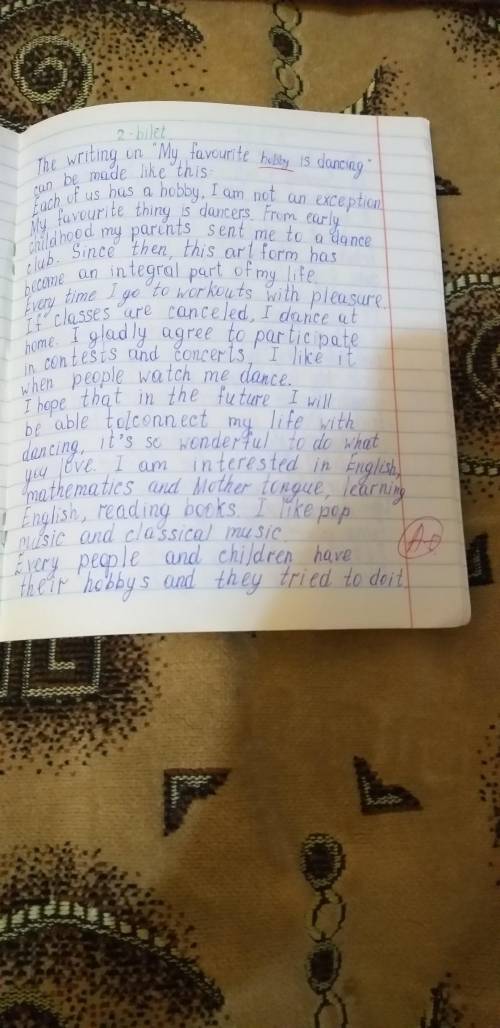 2-bilet
The writing on "My favourite hobby is dancing"
can be made like this:
Each of us has a hobby, I am not an exception
My favourite thing is dancers. From early
childhood my parents sent me to a dance
club. Since then, this art form has
become an integral part of my life.
Every time I go to workouts with pleasure.
If classes are canceled, I dance at
home. I gladly agree to participate
in contests and concerts, I like it
when people watch me dance.
I hope that in the future I will
be able to connect my life with
dancing, it's so wonderful to do what
you love. I am interested in English,
mathematics and Mother tongue, learning
English, reading books. I like pop
music and classical music.
Every people and children have
their hobbys and they tried to do it